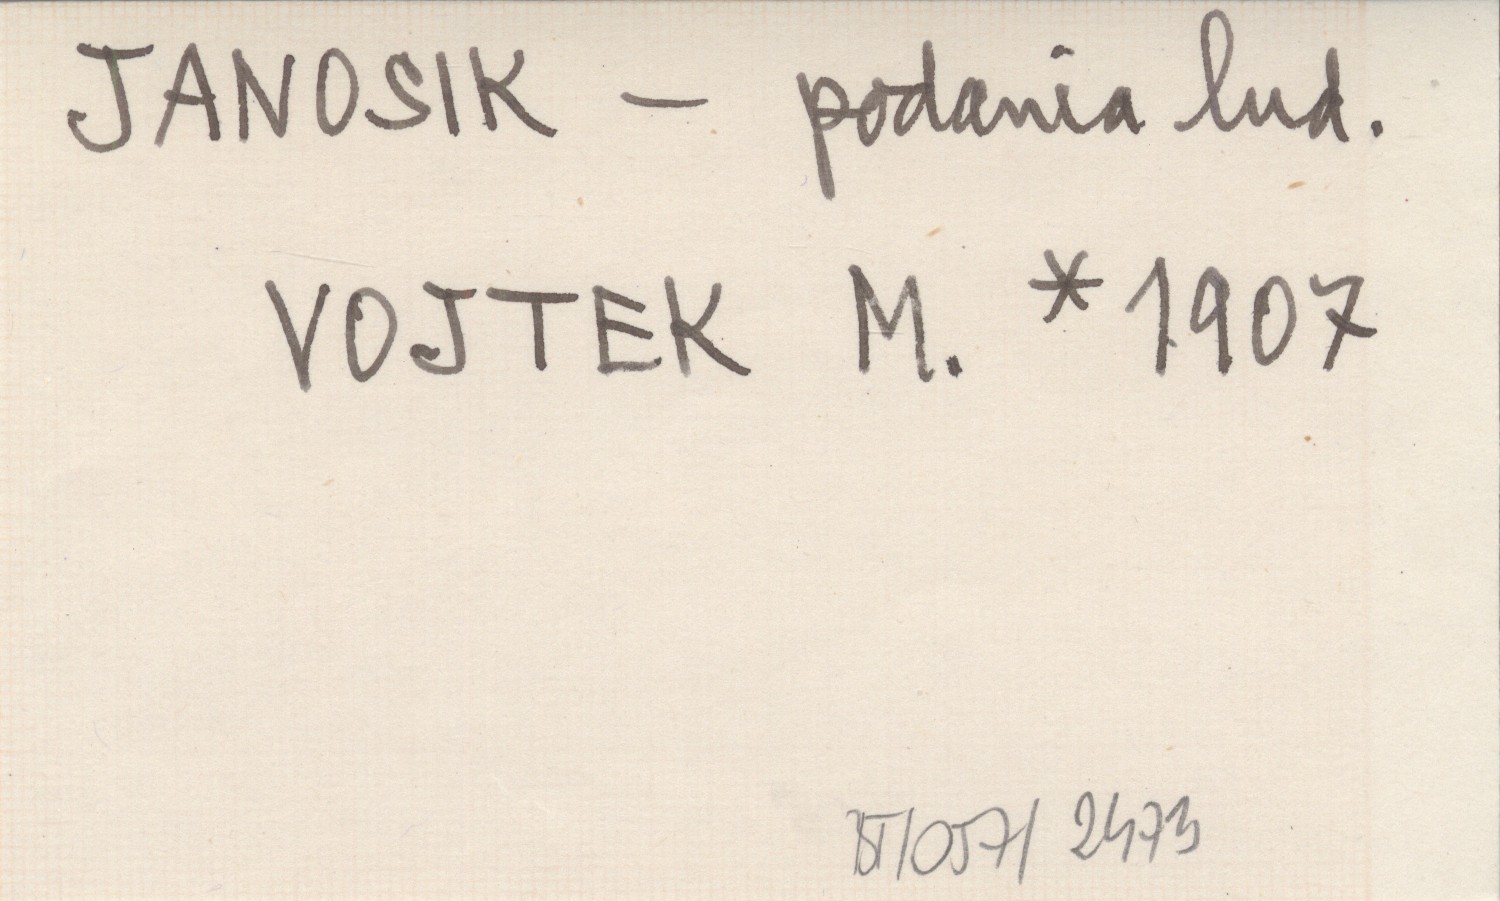 JANOSIK — podania lud.
VOJTEK M. *1907
/057/ 2473